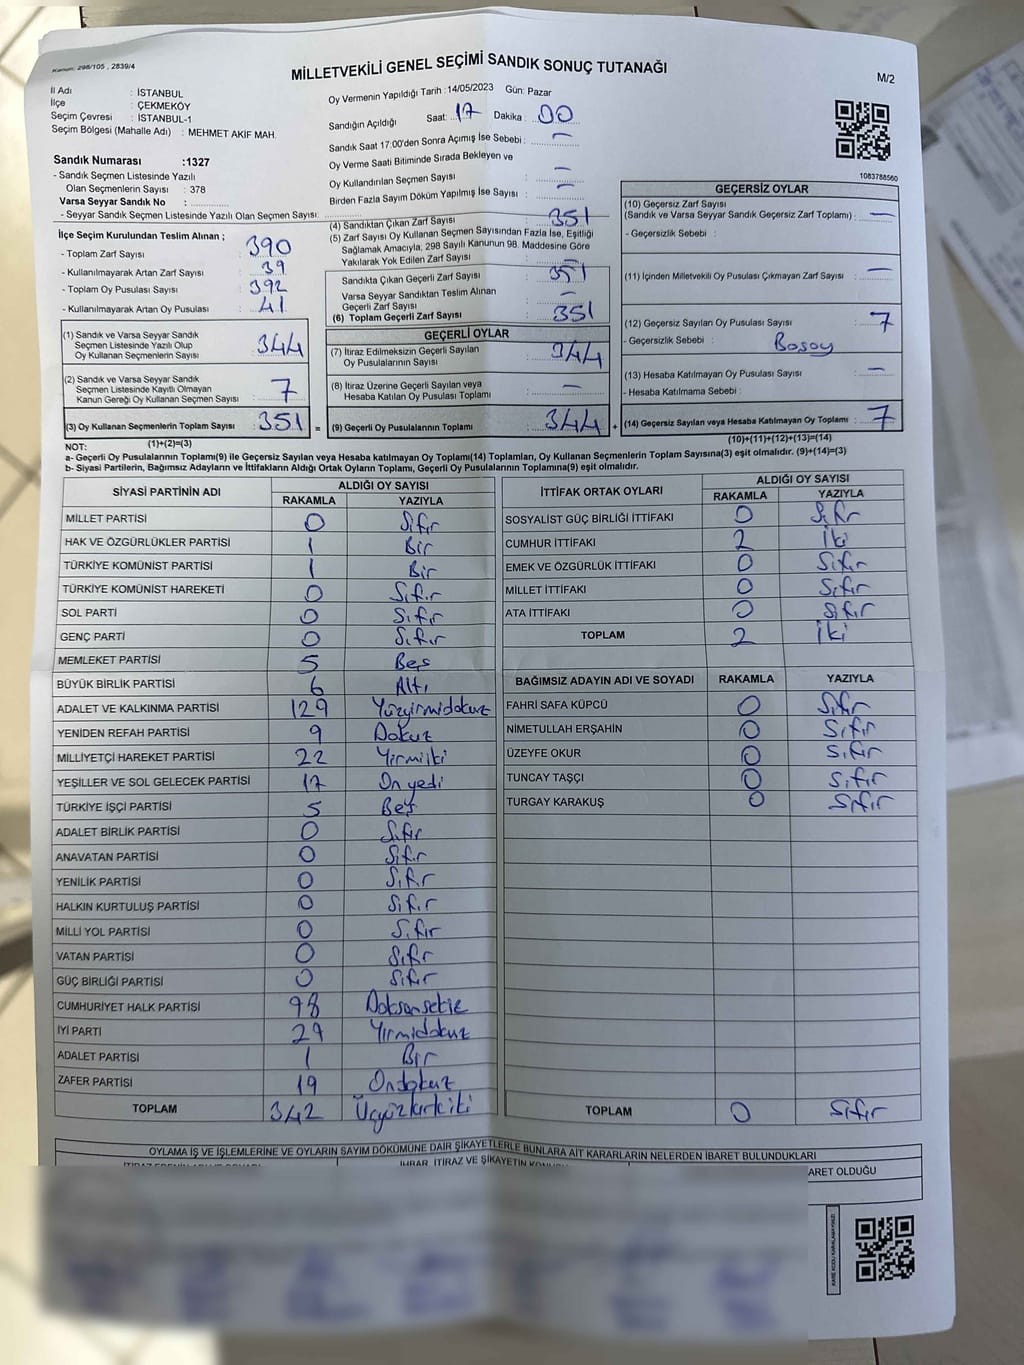 Kanun: 298/105 , 2839/4
MİLLETVEKİLİ GENEL SEÇİMİ SANDIK SONUÇ TUTANAĞI
M/2
İl Adı : İSTANBUL
İlçe : ÇEKMEKÖY
Seçim Çevresi : İSTANBUL-1
Seçim Bölgesi (Mahalle Adı) : MEHMET AKİF MAH.
Oy Vermenin Yapıldığı Tarih : 14/05/2023 Gün: Pazar
Sandığın Açıldığı Saat: 17 Dakika : 00
Sandık Saat 17:00'den Sonra Açımış İse Sebebi : —
Oy Verme Saati Bitiminde Sırada Bekleyen ve
Oy Kullandırılan Seçmen Sayısı : —
Birden Fazla Sayım Döküm Yapılmış İse Sayısı : —
1083788560
Sandık Numarası :1327
- Sandık Seçmen Listesinde Yazılı
Olan Seçmenlerin Sayısı : 378
Varsa Seyyar Sandık No :
- Seyyar Sandık Seçmen Listesinde Yazılı Olan Seçmen Sayısı:
İlçe Seçim Kurulundan Teslim Alınan ;
- Toplam Zarf Sayısı : 390
- Kullanılmayarak Artan Zarf Sayısı : 39
- Toplam Oy Pusulası Sayısı : 392
- Kullanılmayarak Artan Oy Pusulası : 41
(1) Sandık ve Varsa Seyyar Sandık
Seçmen Listesinde Yazılı Olup
Oy Kullanan Seçmenlerin Sayısı : 344
(2) Sandık ve Varsa Seyyar Sandık
Seçmen Listesinde Kayıtlı Olmayan
Kanun Gereği Oy Kullanan Seçmen Sayısı : 7
(3) Oy Kullanan Seçmenlerin Toplam Sayısı : 351 =
(4) Sandıktan Çıkan Zarf Sayısı : 351
(5) Zarf Sayısı Oy Kullanan Seçmen Sayısından Fazla İse, Eşitliği
Sağlamak Amacıyla, 298 Sayılı Kanunun 98. Maddesine Göre
Yakılarak Yok Edilen Zarf Sayısı : —
Sandıkta Çıkan Geçerli Zarf Sayısı : 351
Varsa Seyyar Sandıktan Teslim Alınan
Geçerli Zarf Sayısı : —
(6) Toplam Geçerli Zarf Sayısı : 351
GEÇERLİ OYLAR
(7) İtiraz Edilmeksizin Geçerli Sayılan
Oy Pusulalarının Sayısı : 344
(8) İtiraz Üzerine Geçerli Sayılan veya
Hesaba Katılan Oy Pusulası Toplamı : —
(9) Geçerli Oy Pusulalarının Toplamı : 344 +
GEÇERSİZ OYLAR
(10) Geçersiz Zarf Sayısı
(Sandık ve Varsa Seyyar Sandık Geçersiz Zarf Toplamı) : —
- Geçersizlik Sebebi :
(11) İçinden Milletvekili Oy Pusulası Çıkmayan Zarf Sayısı : —
(12) Geçersiz Sayılan Oy Pusulası Sayısı : 7
- Geçersizlik Sebebi :
(13) Hesaba Katılmayan Oy Pusulası Sayısı : —
- Hesaba Katılmama Sebebi :
(14) Geçersiz Sayılan veya Hesaba Katılmayan Oy Toplamı : 7
NOT: (1)+(2)=(3)
(10)+(11)+(12)+(13)=(14)
a- Geçerli Oy Pusulasının Toplamı(9) ile Geçersiz Sayılan veya Hesaba katılmayan Oy Toplamı(14) Toplamları, Oy Kullanan Seçmenlerin Toplam Sayısına(3) eşit olmalıdır. (9)+(14)=(3)
b- Siyasi Partilerin, Bağımsız Adayların ve İttifakların Aldığı Ortak Oyların Toplamı, Geçerli Oy Pusulalarının Toplamına(9) eşit olmalıdır.
SİYASİ PARTİNİN ADI ALDIĞI OY SAYISI
RAKAMLA YAZIYLA
MİLLET PARTİSİ 0 Sıfır
HAK VE ÖZGÜRLÜKLER PARTİSİ 1 Bir
TÜRKİYE KOMÜNİST PARTİSİ 1 Bir
TÜRKİYE KOMÜNİST HAREKETİ 0 Sıfır
SOL PARTİ 0 Sıfır
GENÇ PARTİ 0 Sıfır
MEMLEKET PARTİSİ 5 Beş
BÜYÜK BİRLİK PARTİSİ 6 Altı
ADALET VE KALKINMA PARTİSİ 129 Yüzyirmidokuz
YENİDEN REFAH PARTİSİ 9 Dokuz
MİLLİYETÇİ HAREKET PARTİSİ 22 Yirmiiki
YEŞİLLER VE SOL GELECEK PARTİSİ 17 Onyedi
TÜRKİYE İŞÇİ PARTİSİ 5 Beş
ADALET BİRLİK PARTİSİ 0 Sıfır
ANAVATAN PARTİSİ 0 Sıfır
YENİLİK PARTİSİ 0 Sıfır
HALKIN KURTULUŞ PARTİSİ 0 Sıfır
MİLLİ YOL PARTİSİ 0 Sıfır
VATAN PARTİSİ 0 Sıfır
GÜÇ BİRLİĞİ PARTİSİ 0 Sıfır
CUMHURİYET HALK PARTİSİ 98 Doksansekiz
İYİ PARTİ 29 Yirmidokuz
ADALET PARTİSİ 1 Bir
ZAFER PARTİSİ 19 Ondokuz
TOPLAM 342 Üçyüzkırkiki
İTTİFAK ORTAK OYLARI ALDIĞI OY SAYISI
RAKAMLA YAZIYLA
SOSYALİST GÜÇ BİRLİĞİ İTTİFAKI 0 Sıfır
CUMHUR İTTİFAKI 2 İki
EMEK VE ÖZGÜRLÜK İTTİFAKI 0 Sıfır
MİLLET İTTİFAKI 0 Sıfır
ATA İTTİFAKI 0 Sıfır
TOPLAM 2 İki
BAĞIMSIZ ADAYIN ADI VE SOYADI RAKAMLA YAZIYLA
FAHRİ SAFA KÜPCÜ 0 Sıfır
NİMETULLAH ERŞAHİN 0 Sıfır
ÜZEYFE OKUR 0 Sıfır
TUNCAY TAŞÇI 0 Sıfır
TURGAY KARAKUŞ 0 Sıfır
TOPLAM 0 Sıfır
OYLAMA İŞ VE İŞLEMLERİNE VE OYLARIN SAYIM DÖKÜMÜNE DAİR ŞİKAYETLERLE BUNLARA AİT KARARLARIN NELERDEN İBARET BULUNDUKLARI
İHBAR, İTİRAZ VE ŞİKAYETİN KONUSU
ARET OLDUĞU